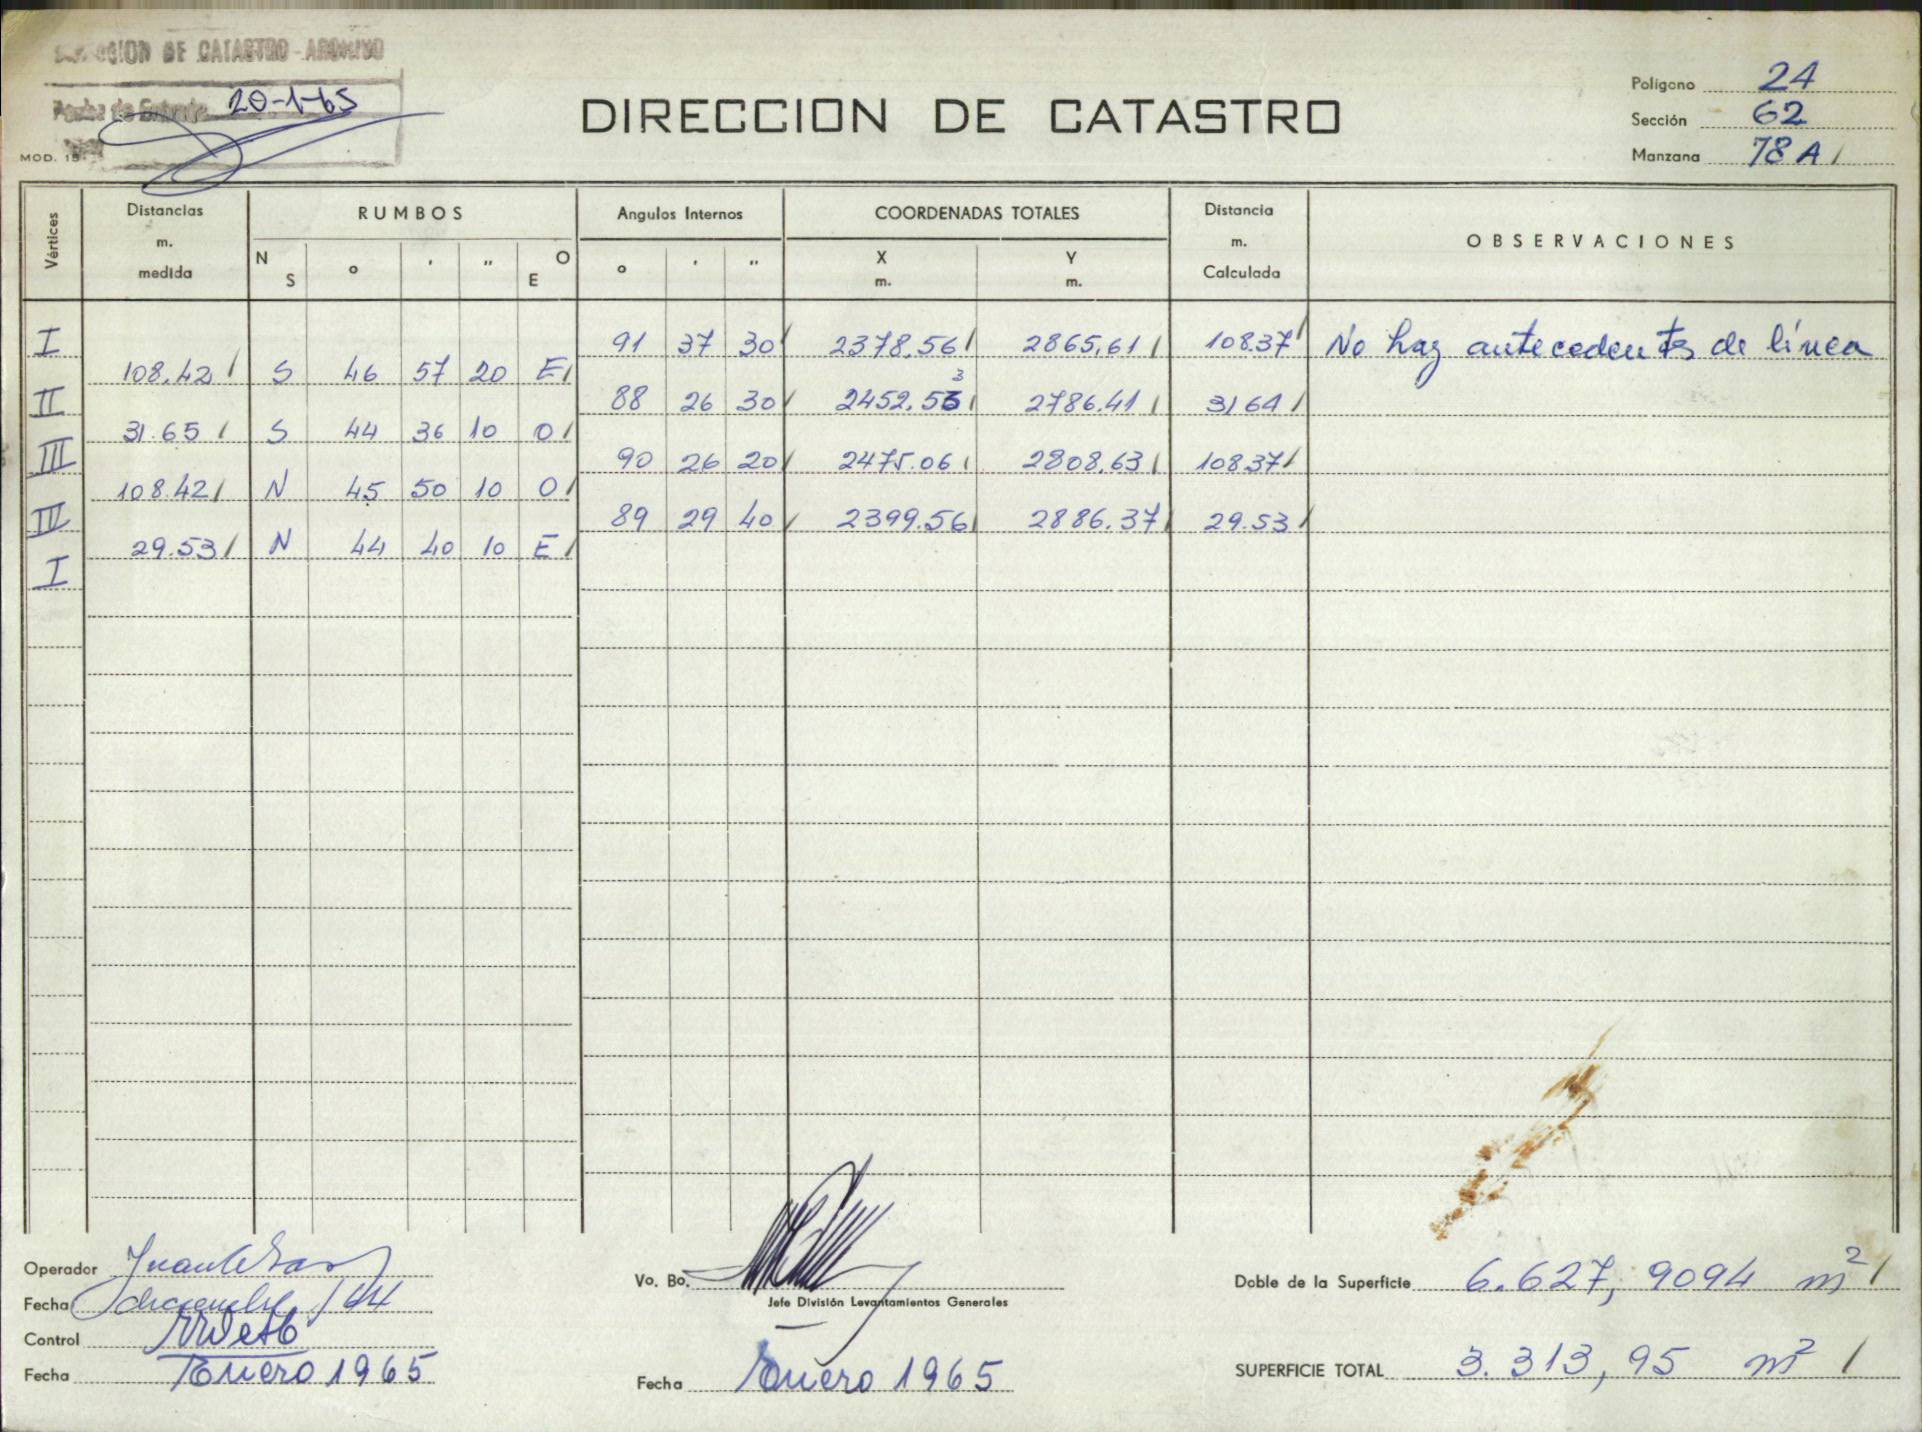 DIRECCION DE CATASTRO - ARCHIVO
Fecha de Entrada 20-1-65
MOD. 15
DIRECCION DE CATASTRO
Polígono 24
Sección 62
Manzana 78 A
Vértices Distancias m. medida RUMBOS N S ° ' " O E Angulos Internos ° ' " COORDENADAS TOTALES X m. Y m. Distancia m. Calculada OBSERVACIONES
I 91 37 30 2378.56 2865.61 108.37 No hay antecedentes de línea
108.42 S 46 57 20 E
II 88 26 30 2452.53 3 2786.41 31.64
31.65 S 44 36 10 O
III 90 26 20 2475.06 2808.63 108.37
108.42 N 45 50 10 O
IV 89 29 40 2399.56 2886.37 29.53
29.53 N 44 40 10 E
I
Operador
Fecha diciembre
Control
Fecha Enero 1965
Vo. Bo.
Jefe División Levantamientos Generales
Fecha Enero 1965
Doble de la Superficie 6.627,9094 m²
SUPERFICIE TOTAL 3.313,95 m²